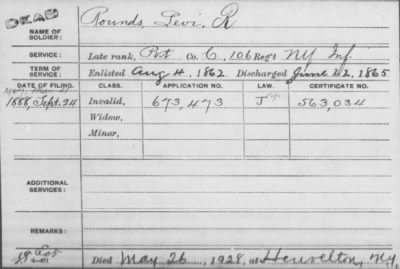 NAME OF SOLDIER: Rounds, Levi. R
SERVICE: Late rank, Pvt Co. C, 106 Reg't NY Inf.
TERM OF SERVICE: Enlisted Aug 4, 1862 Discharged June 22, 1865
DATE OF FILING. CLASS. APPLICATION NO. LAW. CERTIFICATE NO.
1888, Sept. 24 Invalid, 673,473 J 563,034
Widow,
Minor,
ADDITIONAL SERVICES:
REMARKS:
Died May 26, 1928, at Heuvelton, NY.